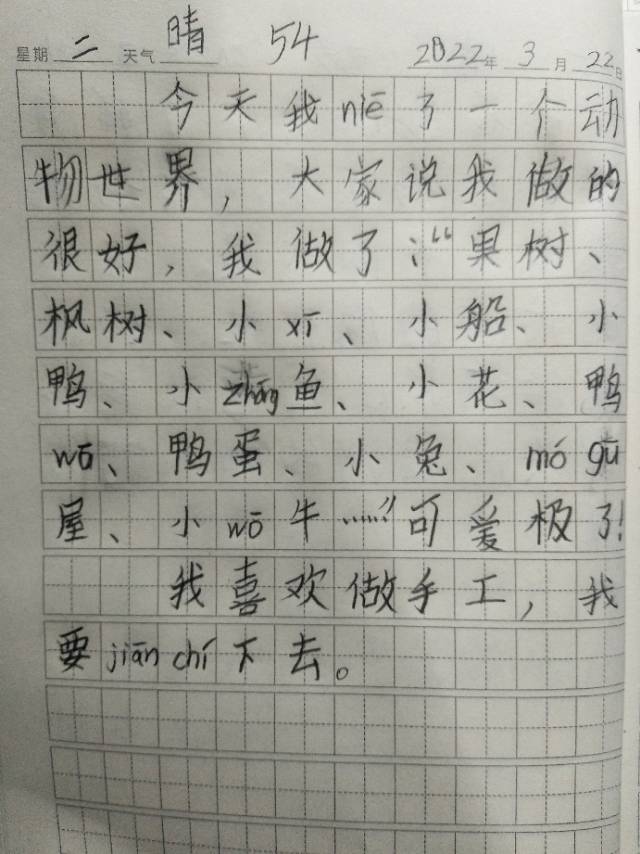 星期 二 天气 晴 54 2022年 3月 22日
今天我niē了一个动
物世界，大家说我做的
很好，我做了：“果树、
枫树、小xī、小船、小
鸭、小zhāng鱼、小花、鸭
wō、鸭蛋、小兔、mó gū
屋、小wō牛……”可爱极了!
我喜欢做手工，我
要jiān chí下去。